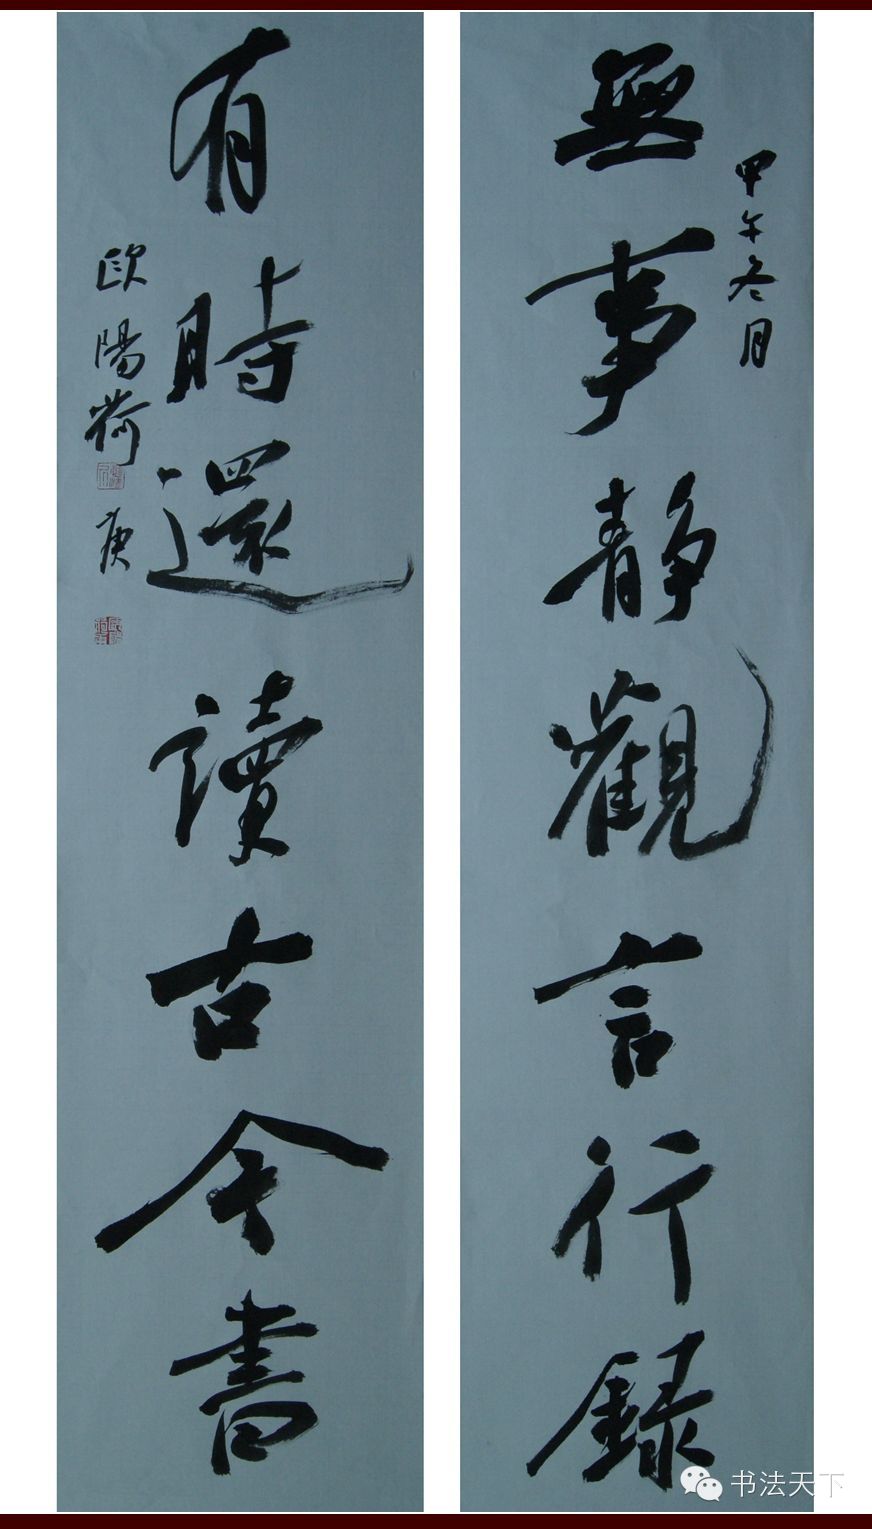 甲午冬月
無事靜觀言行録
有時還讀古今書
歐陽荷庚
书法天下